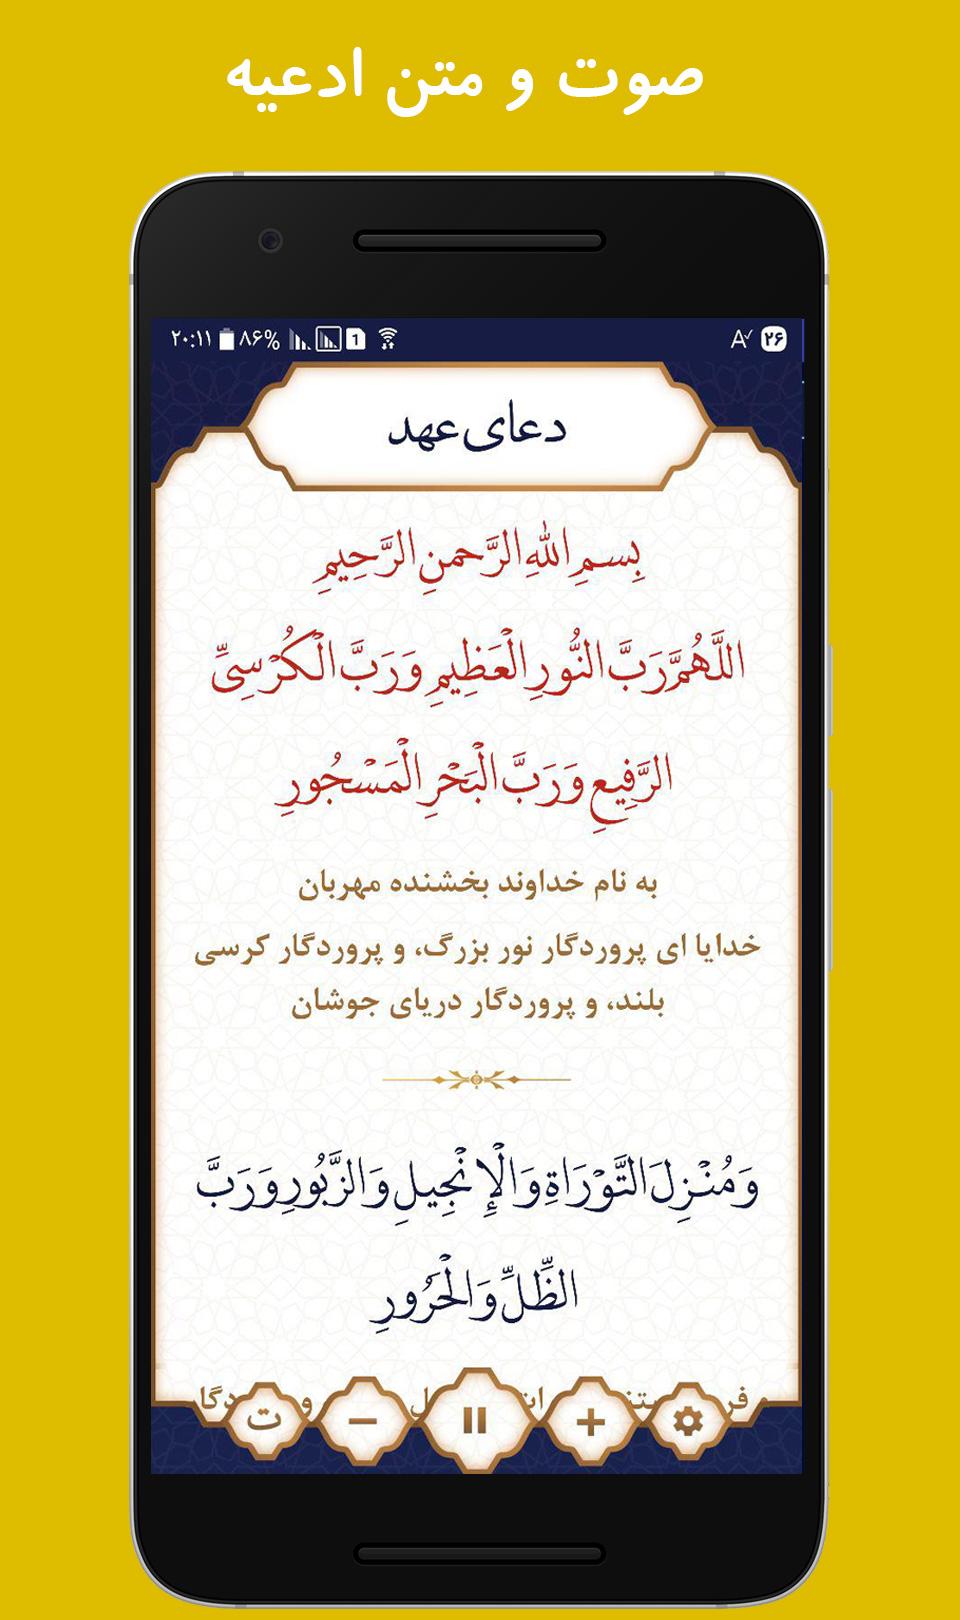 صوت و متن ادعیه
۲۰:۱۱ ۸۶% 1 A ۲۶
دعای عهد
بِسمِ اللهِ الرَّحمنِ الرَّحِیمِ
اللَّهُمَّ رَبَّ النُّورِ الْعَظِیمِ وَ رَبَّ الْکُرْسِیِّ
الرَّفِیعِ وَ رَبَّ الْبَحْرِ الْمَسْجُورِ
به نام خداوند بخشنده مهربان
خدایا ای پروردگار نور بزرگ، و پروردگار کرسی
بلند، و پروردگار دریای جوشان
وَ مُنْزِلَ التَّوْرَاةِ وَ الْإِنْجِیلِ وَ الزَّبُورِ وَ رَبَّ
الظِّلِّ وَ الْحَرُورِ
ت